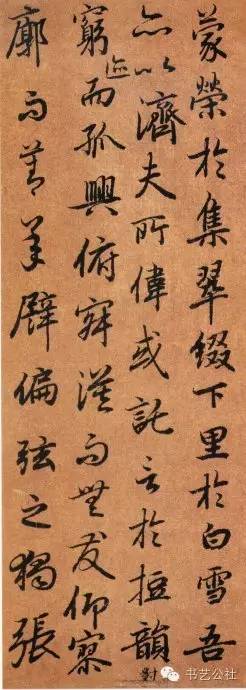 蒙榮於集翠綴下里於白雪吾
亦以濟夫所偉或託言於短韻對
窮迹而孤興俯寂漠而無友仰寥
廓而莫承譬偏弦之獨張
书艺公社